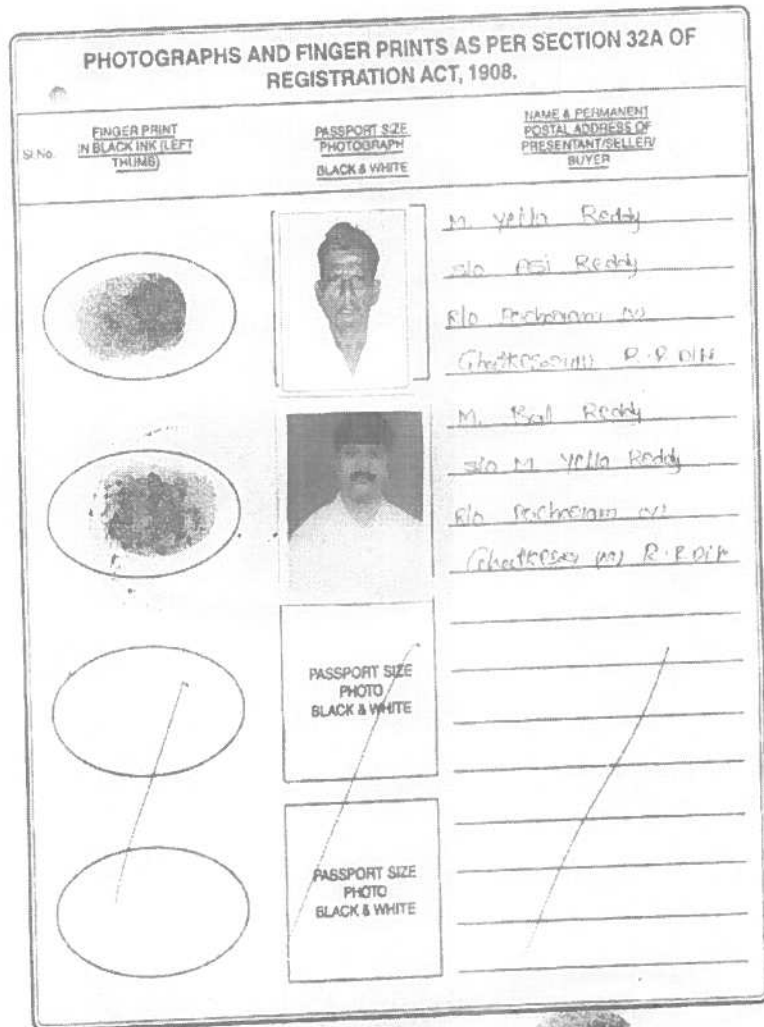 PHOTOGRAPHS AND FINGER PRINTS AS PER SECTION 32A OF
REGISTRATION ACT, 1908.
Sl.No.
FINGER PRINT
IN BLACK INK (LEFT
THUMB)
PASSPORT SIZE
PHOTOGRAPH
BLACK & WHITE
NAME & PERMANENT
POSTAL ADDRESS OF
PRESENTANT/SELLER/
BUYER
M. Yella Reddy
S/o Asi Reddy
R/o (V)
Ghatkesar (M) R.R Dist
M. Bal Reddy
S/o M. Yella Reddy
R/o (V)
Ghatkesar (M) R.R Dist
PASSPORT SIZE
PHOTO
BLACK & WHITE
PASSPORT SIZE
PHOTO
BLACK & WHITE